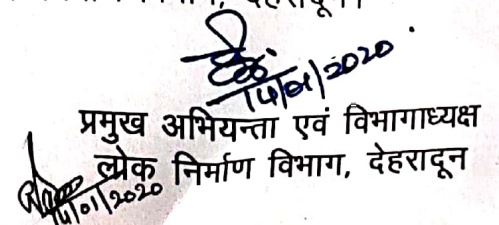 देहरादून।
14/01/2020
प्रमुख अभियन्ता एवं विभागाध्यक्ष
लोक निर्माण विभाग, देहरादून
14/01/2020